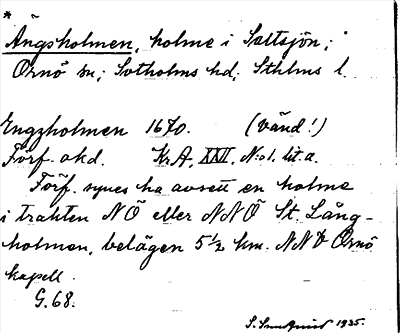 *
Ängsholmen, holme i Saltsjön;
Ornö sn; Sotholms hd; Sthlms l.
Engzholmen 1670. (Vänd!)
Förf. okd. Kr.A. XXII, N:o 1. lit. a.
Förf. synes ha avsett en holme
i trakten NÖ eller NNÖ St. Lång-
holmen, belägen 5 1/2 km. NNV Ornö
kapell.
G. 68.
1935.